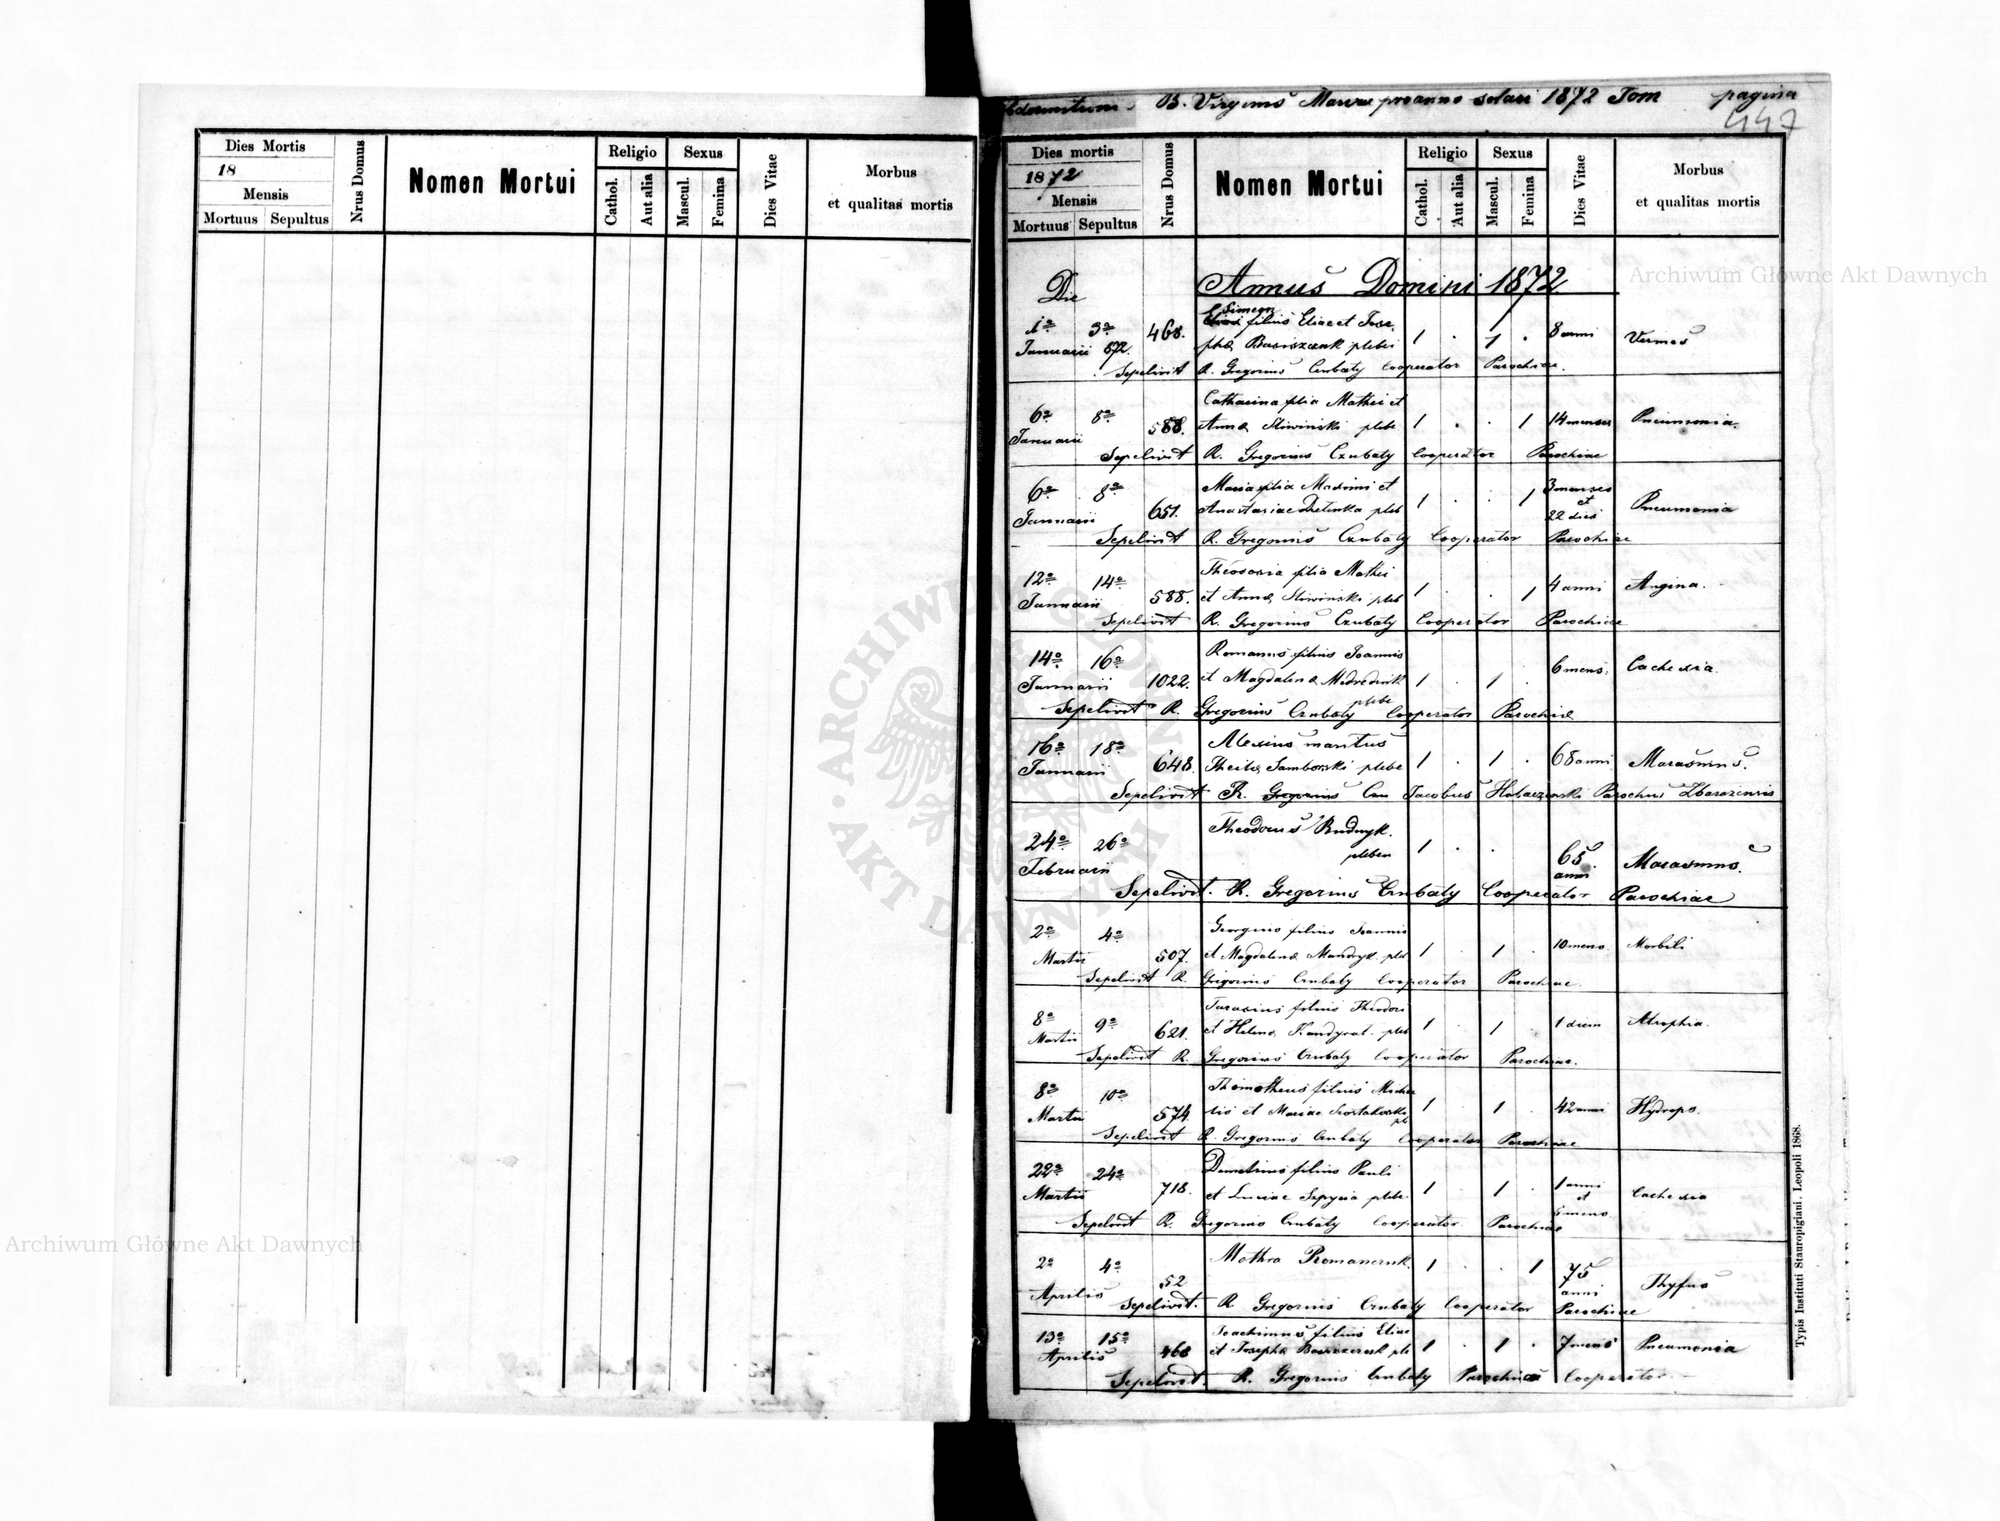 Dies Mortis
18
Mensis
Mortuus Sepultus
Nrus Domus
Nomen Mortui
Religio
Cathol.
Aut alia
Sexus
Mascul.
Femina
Dies Vitae
Morbus
et qualitas mortis
B. Virginis Mariae pro anno solari 1872 Tom pagina
447
Dies mortis
1872
Mensis
Mortuus Sepultus
Nrus Domus
Nomen Mortui
Religio
Cathol.
Aut alia
Sexus
Mascul.
Femina
Dies Vitae
Morbus
et qualitas mortis
Die Annus Domini 1872
Simeon
1a 3a 468. filius Eliae et Jose
Januarii 872. phae plebei 1 . 1 . 8 anni Vermes
Sepelivit R. Gregorius Czubaty Cooperator Parochiae.
Catharina filia Mathei et
6a 8a 588. Annae Sliwinski plebe 1 . . 1 14 menses Pneumonia.
Januarii
Sepelivit R. Gregorius Czubaty Cooperator Parochiae
6a 8a Maria filia Maximi et 3 menses
Januarii 651. Anastasiae pleb 1 . . 1 et 22 dies Pneumonia
Sepelivit R. Gregorius Czubaty Cooperator Parochiae
12a 14a Theodosia filia Mathei
Januarii 588. et Annae Sliwinski pleb 1 . . 1 4 anni Angina.
Sepelivit R. Gregorius Czubaty Cooperator Parochiae
14a 16a Romanus filius Joannis
Januarii 1022. et Magdalenae plebe 1 . 1 . 6 mens. Cachexia.
Sepelivit R. Gregorius Czubaty Cooperator Parochiae
16a 18a Alexius maritus
Januarii 648. Samborski plebe 1 . 1 . 68 anni Marasmus.
Sepelivit R. Gregorius Czu Jacobus Parochus Zbarazensis
24a 26a Theodorus Rudnyk.
Februarii plebeu 1 . . 65 anni Marasmus.
Sepelivit. R. Gregorius Czubaty Cooperator Parochiae
2a 4a Georgius filius Joannis
Martii 507. et Magdalenae Mandryk pleb 1 . 1 . 10 mens. Morbili
Sepelivit R. Gregorius Czubaty Cooperator Parochiae.
8a 9a Tarasius filius Theodori
Martii 621. et Helenae pleb 1 . 1 . 1 diem Atrophia.
Sepelivit R. Gregorius Czubaty Cooperator Parochiae.
8a 10a Thimotheus filius Michae
Martii 574. lis et Mariae 1 . 1 . 42 anni Hydrops.
Sepelivit R. Gregorius Czubaty Cooperator Parochiae
22a 24a Demetrius filius Pauli
Martii 718. et Luciae plebe. 1 . 1 . 1 anni et 6 mens Cachexia
Sepelivit R. Gregorius Czubaty Cooperator Parochiae
2a 4a Mothra Romanczuk. 1 . . 1 75 anni Thyfus
Aprilis 52
Sepelivit. R Gregorius Czubaty Cooperator Parochiae
13a 15a Joachimus filius Eliae
Aprilis 468 et Josephae ple 1 . 1 . 7 mens Pneumonia
Sepelivit. R. Gregorius Czubaty Parochiae Cooperator
Typis Instituti Stauropigiani. Leopoli 1868.
Archiwum Główne Akt Dawnych
Archiwum Główne Akt Dawnych
ARCHIWUM GŁÓWNE AKT DAWNYCH